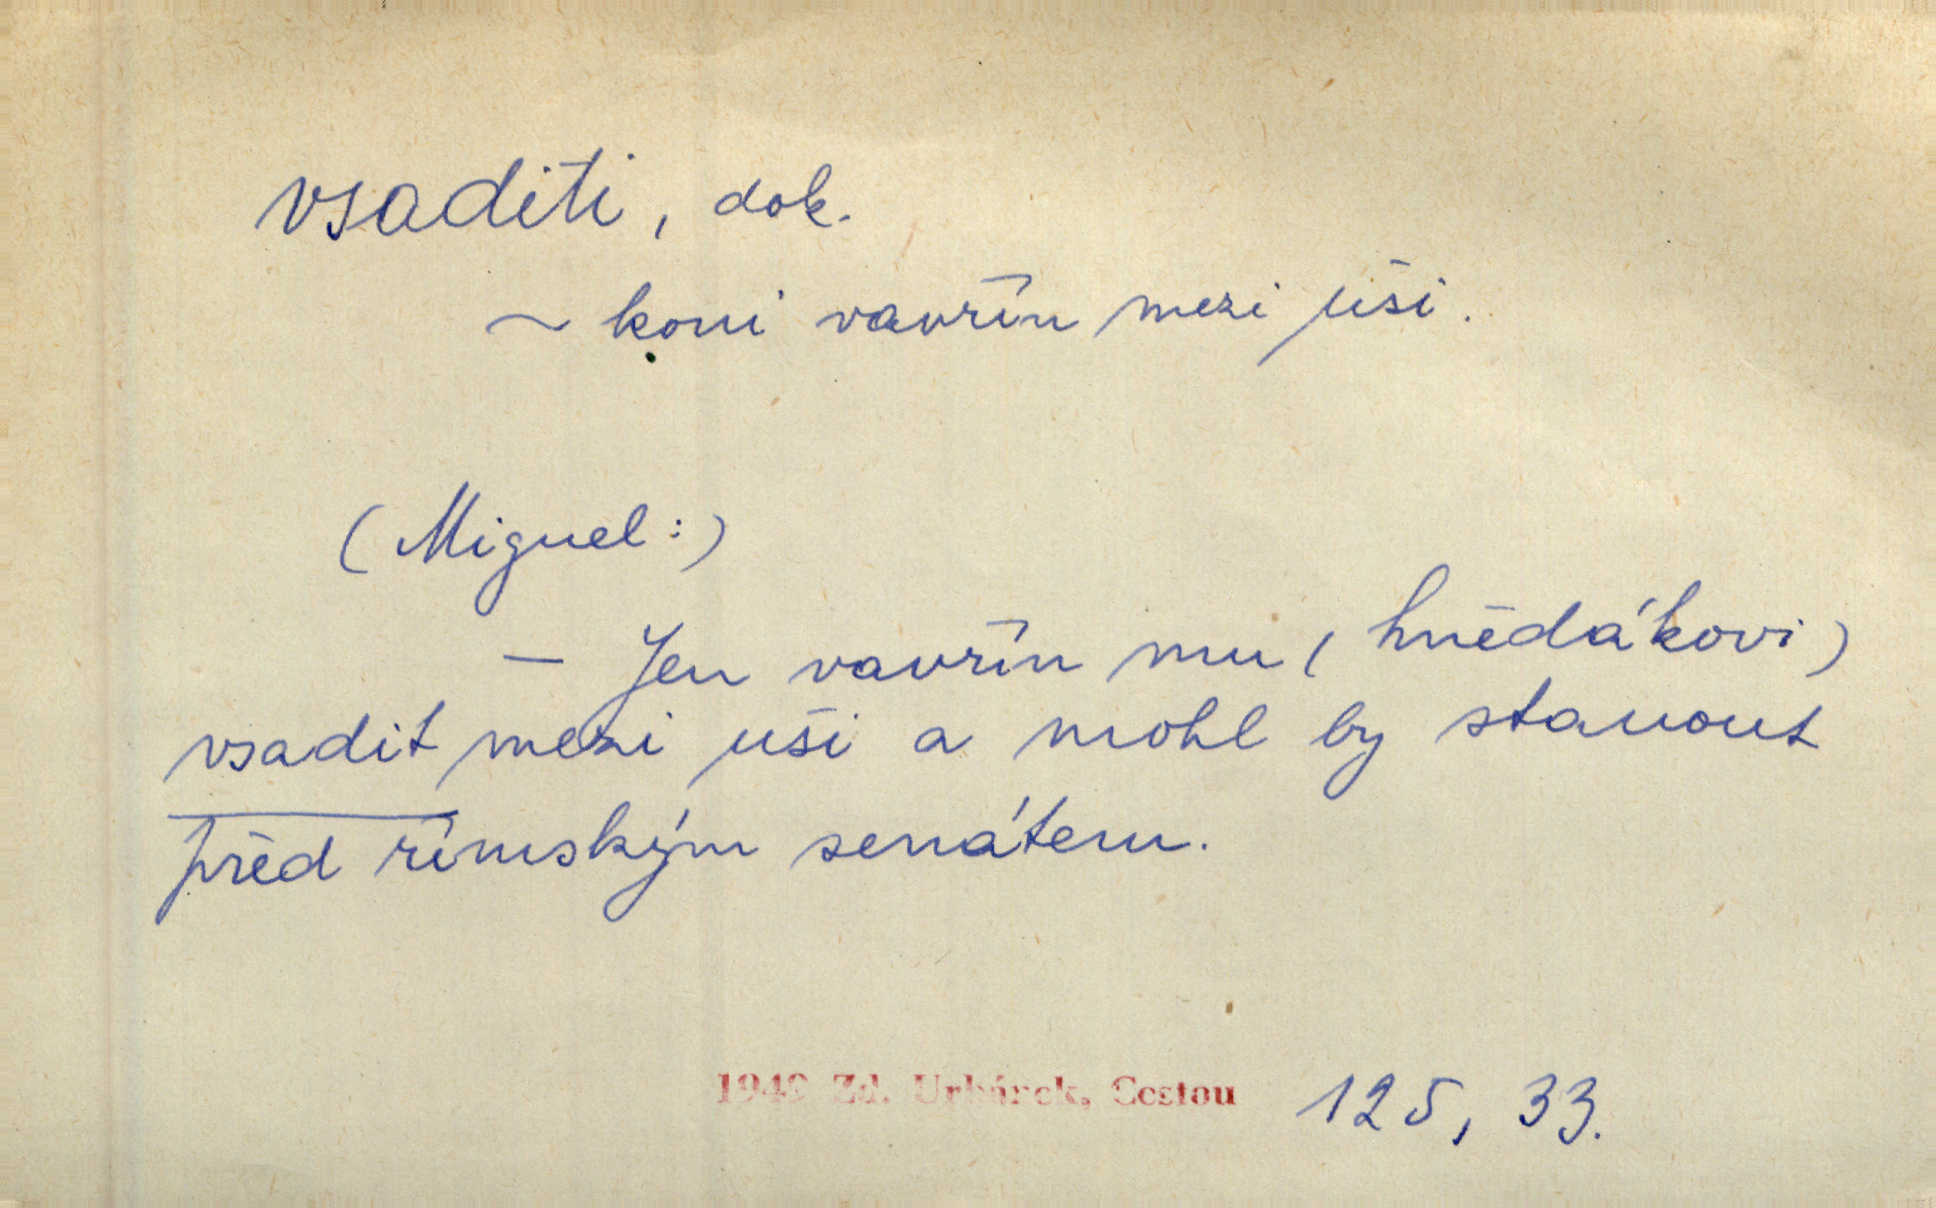 vsaditi, dok.
~ koni vavřín mezi uši.
(Miguel:)
— Jen vavřín mu (hnědákovi)
vsadit mezi uši a mohl by stanout
před římským senátem.
1949 Zd. Urbánek, Cestou 125, 33.